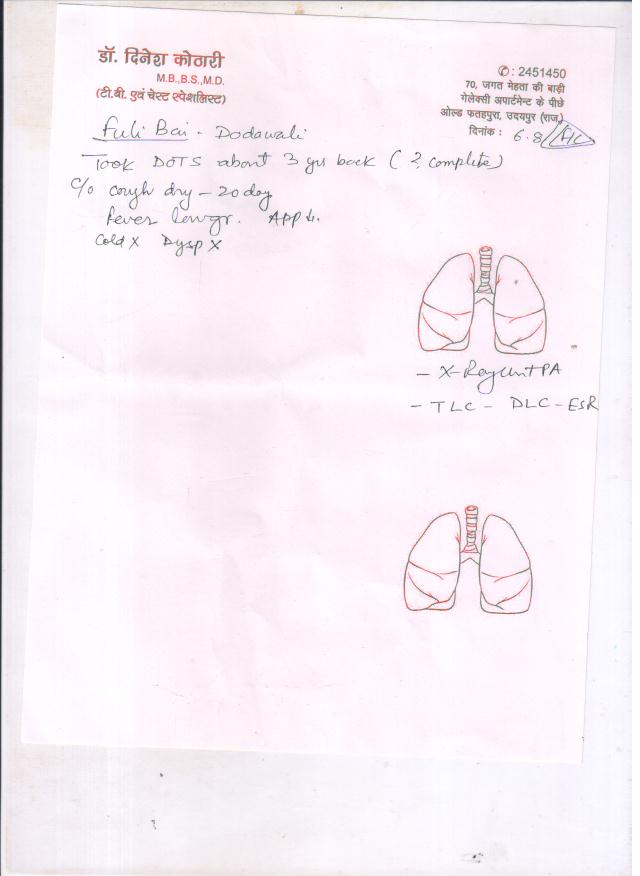 डॉ. दिनेश कोठारी
M.B.,B.S.,M.D.
(टी.बी. एवं चेस्ट स्पेशलिस्ट)
✆ : 2451450
70, जगत मेहता की बाड़ी
गेलेक्सी अपार्टमेन्ट के पीछे
ओल्ड फतहपुरा, उदयपुर (राज.)
दिनांक : 6.8
Fuli Bai - Dodawali
Took DOTS about 3 yrs back ( ? complete)
C/o cough dry - 20 day
fever lowgr. App ↓.
Cold X Dysp X
- X-Ray PA
- TLC - DLC - ESR